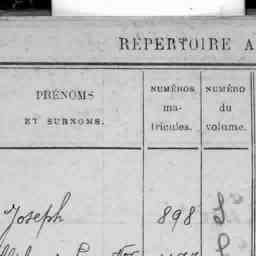 RÉPERTOIRE A
PRÉNOMS
ET SURNOMS.
NUMÉROS
ma-
tricules.
NUMÉRO
du
volume.
Joseph 898